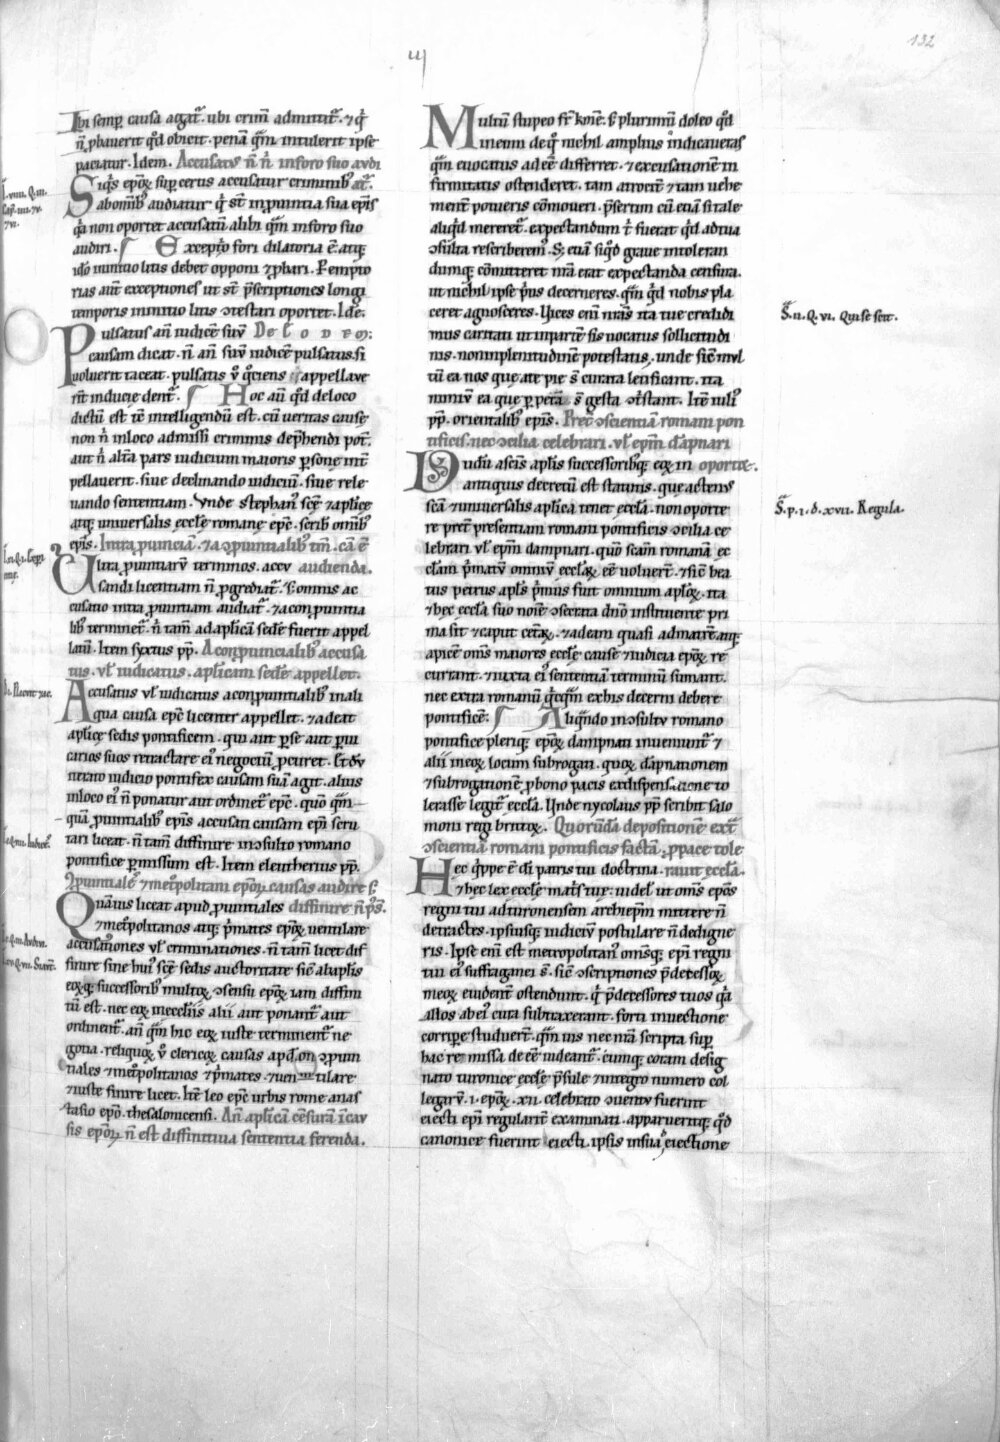 132
Ibi semꝑ causa agat᷑. ubi crim̄ admittit᷑. ⁊ q̇
n̄ ꝓbauerit qd̓ obicit. penā qm̄ intulerit ipse
paciatur. Idem. Accusatꝰ n̄ n̓ inforo suo audi
Siqͥs ep̄oꝝ suꝑ certis accusatur criminibꝫ at᷑.
ab omnibꝫ audiatur q̓ st̄ inꝓuintia sua ep̄is
q̓a non oportet accusatū alibi qm̄ inforo suo
audiri. Exceptio fori dilatoria ē. atqꝫ
id̓o initio litis debet opponi ⁊ ꝓbari. Pemptо
rias aut̄ exceptiones ut st̄ p̄scriptiones longi
temporis initio litis ↄtestari oportet. Idē.
Pulsatus an̄ iudicē suū De Eodem.
causam dicat. n̄ an̄ suū iudicē pulsatus. si
uoluerit taceat. pulsatis v̓ q̓ciens appellaue
rit̄ inducie dent᷑. Hoc aū qd̓ de loco
dictū est ic̄ intelligendū est. cū ueritas cause
non n̓ inloco admissi criminis dep̄hendi pot̄.
aut n̓ alt̄a pars iudicium maioris ꝑsone int̄
pellauerit. siue declinando iudiciū. siue rele
uando sententiam. Vnde stephanꝰ scē ⁊ aplicę
atqꝫ uniuersalis ecclę romane ep̄c. scrib̄ omibꝫ
ep̄is. Intra ꝓuinciā. ⁊ a ꝯꝓuintialibꝫ tm̄. cā ē
Vltra ꝓuintiarū terminos. accu audienda.
sandi licentiam n̄ ꝓgrediat᷑. sꝫ omnis ac
cusatio intra ꝓuintiam audiat᷑. ⁊ a conꝓuintia
libꝫ terminet᷑. n̓ tam̄ ad aplicā sedē fuerit appel
latū. Item syxtus pp. A conꝓuincialibꝫ accusa
tus. vl̓ iudicatus. aplicam sedē appellet.
Accusatus vl̓ iudicatus a conꝓuintialibꝫ in ali
qua causa ep̄c licenter appellet. ⁊ adeat
aplicę sedis pontificem. qui aut ꝑ se aut ꝑ ui
carios suos retractare ei̓ negociū ꝓcuret. Et dū
iterato iudicio pontifex causam suā agit. alius
inloco ei̓ n̄ ponatur aut ordinet᷑ ep̄c. quō qm̄
quā ꝓuintialibꝫ ep̄is accusati causam ep̄i scru
tari liceat. n̄ tam̄ diffinire inↄsulto romano
pontifice ꝑmissum est. Item eleutherius pp.
Ꝯꝓuintiales ⁊ met̓politani ep̄oꝝ causas audire sꝫ
Quāuis liceat apud ꝓuintiales diffinire n̄ p̄st̄.
⁊ met̓politanos atqꝫ p̓mates ep̄oꝝ uentilare
accusat̓ones vl̓ criminationes. n̄ tam̄ licet dif
finire sine huiꝰ scę sedis auctoritate sic̄ ab aplis
eoꝝqꝫ successoribꝫ multoꝝ ↄsensu ep̄oꝝ iam diffini
tū est. nec eoꝝ in ecc̄liis alii aut ponant᷑ aut
ordinent᷑. an̄ qm̄ hic eoꝝ iuste terminent᷑ ne
gotia. reliquoꝝ v̓ clericoꝝ causas apd̓ ↄꝓuin
tiales ⁊ met̓politanos ⁊ p̓mates. ⁊ uentilare
⁊ iuste finire licet. Itē leo ep̄c urbis rome anas
tasio ep̄o. thesalonicensi. An̄ aplicā cēsurā ī cau
sis ep̄oꝝ n̄ est diffinitiua sententia ferenda.
Multū stupeo fr̄ km̄e. sꝫ plurimū doleo qd̓
in eum de q̓ nichil amplius indicaueras
qm̄ euocatus adeē differret. ⁊ excusationē in
firmitatis ostenderet. tam atrocit̓ ⁊ tam uehe
ment̄ potueris cōmoueri. p̄sertim cū etiā si tale
aliqd̓ mereret᷑. expectandum t̓ fuerat qd̓ ad tua
ↄsulta rescriberem᷒. Sꝫ etiā siqd̓ graue intoleran
dumqꝫ cōmitteret nr̄a erat expectanda censura.
ut nichil ipse p̓us decerneres. qm̄ qd̓ nobis pla
ceret agnosceres. Vices enī nr̄as ita tue credidi
mus caritati ut inpartē sis uocatus sollicitudi
nis. non inplenitudinē potestatis. unde sic̄ mvl
tū ea nos que a te pie s̄ curata letificant. ita
nimiū ea que ꝑ perā s̄ gesta ↄt̓stant. Itē iuliꝰ
pp. orientalibꝫ ep̄is. Pret̄ ↄscientiā romani pon
tificis. nec ↄcilia celebrari. vl̓ ep̄m dāpnari
Dudū a scīs aplis successoribꝫqꝫ eoꝝ in oportꝫ.
antiquis decretū est statutis. que actenꝰ
scā ⁊ uniuersalis aplica tenet eccla. non oporte
re pret̄ presentiam romani pontificis ↄcilia ce
lebrari vl̓ ep̄m dampnari. quō scam romanā ec
clam p̓matū omniū ecclaꝝ eē uoluert̄. ⁊ sic̄ bea
tus petrus apls p̓mus fuit omnium aploꝝ. ita
⁊ hec eccla suo noīe ↄsecrata dn̄o instituente pri
ma sit ⁊ caput cet̓aꝝ. ⁊ ad eam quasi ad matrē atqꝫ
apicē om̄s maiores ecclę cause ⁊ iudicia ep̄oꝝ re
currant. ⁊ iuxta ei̓ sententiā terminū sumant.
nec extra romanū q̓cq̄m ex his decerni debere
pontificē. Aliqn̄do inↄsulto romano
pontifice pleriqꝫ ep̄oꝝ dampnati inueniunt᷑ ⁊
alii in eoꝝ locum subrogati. quoꝝ dāpnationem
⁊ subrogationē ꝓ bono pacis ex dispensatione to
lerasse legit᷑ eccla. Vnde nycolaus pp scribit salo
moni regi britoꝝ. Quorūdā depositionē ext̓
ↄscientiā romani pontificis factā. ꝓ pace tole
Hec q̓ppe ē di patris tui doctrina. rauit eccla.
⁊ hec lex ecclę mat̓s tue. uidel̓ ut om̄s ep̄os
regni tui ad turonensem archiep̄m mittere n̄
detractes. ipsiusqꝫ iudiciū postulare n̄ dedigne
ris. Ipse enī est metropolitan᷒ om̄sqꝫ ep̄i regni
tui ei̓ suffraganei s̄. sic̄ ↄscriptiones p̄decessoꝝ
meoꝝ euident̄ ostendunt. q̓ p̄decessores tuos q̓a
illos ab ei̓ cura subtraxerant. forti inuectione
corripe studuert̄. qm̄ iis nec nr̄a scripta suꝑ
hac re missa de eē uideant᷑. cumqꝫ coram desig
nato turonice ecclę p̄sule ⁊ integro numero col
legarū. i. ep̄oꝝ. xii. celebrato ↄuentu fuerint
eiecti ep̄i regularit̄ examinati. apparueritqꝫ qd̓
canonice fuerint eiecti. ipsis insua eiectione
S̄. ii. Q. vi. Qui se scit.
S̄. p. i. d. xvii. Regula.